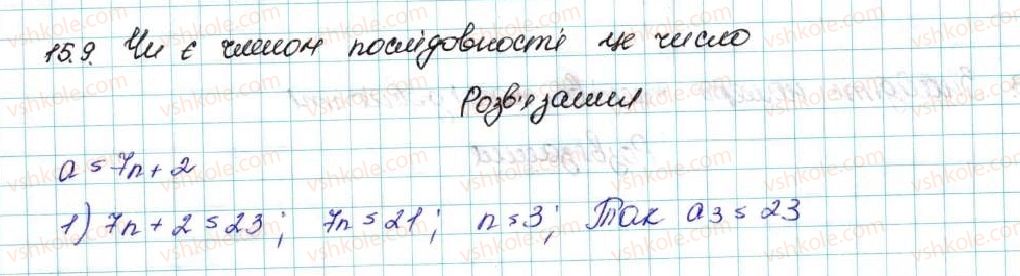 15.9. Чи є членом послідовності це число
Розв'язання
a = 7n + 2
1) 7n + 2 = 23; 7n = 21; n = 3; Так a3 = 23